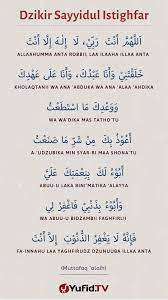 Dzikir Sayyidul Istighfar
اَللَّهُمَّ أَنْتَ رَبِّيْ، لَا إِلَـهَ إِلَّا أَنْتَ
ALLAAHUMMA ANTA ROBBII, LAA ILAAHA ILLAA ANTA
خَلَقْتَنِيْ وَأَنَا عَبْدُكَ، وَأَنَا عَلَى عَهْدِكَ
KHOLAQTANII WA ANA 'ABDUKA WA ANA 'ALAA 'AHDIKA
وَوَعْدِكَ مَا اسْتَطَعْتُ
WA WA'DIKA MAS TATHO'TU
أَعُوْذُ بِكَ مِنْ شَرِّ مَا صَنَعْتُ
A'UDZUBIKA MIN SYAR-RI MAA SHONA'TU
أَبُوْءُ لَكَ بِنِعْمَتِكَ عَلَيَّ
ABUU-U LAKA BINI'MATIKA 'ALAYYA
وَأَبُوْءُ بِذَنْبِيْ فَاغْفِرْ لِيْ
WA ABUU-U BIDZAMBII FAGHFIRLII
فَإِنَّهُ لَا يَغْفِرُ الذُّنُوْبَ إِلَّا أَنْتَ
FA-INNAHU LAA YAGHFIRUDZ DZUNUUBA ILLAA ANTA
(Muttafaq 'alaih)
YUFID.TV